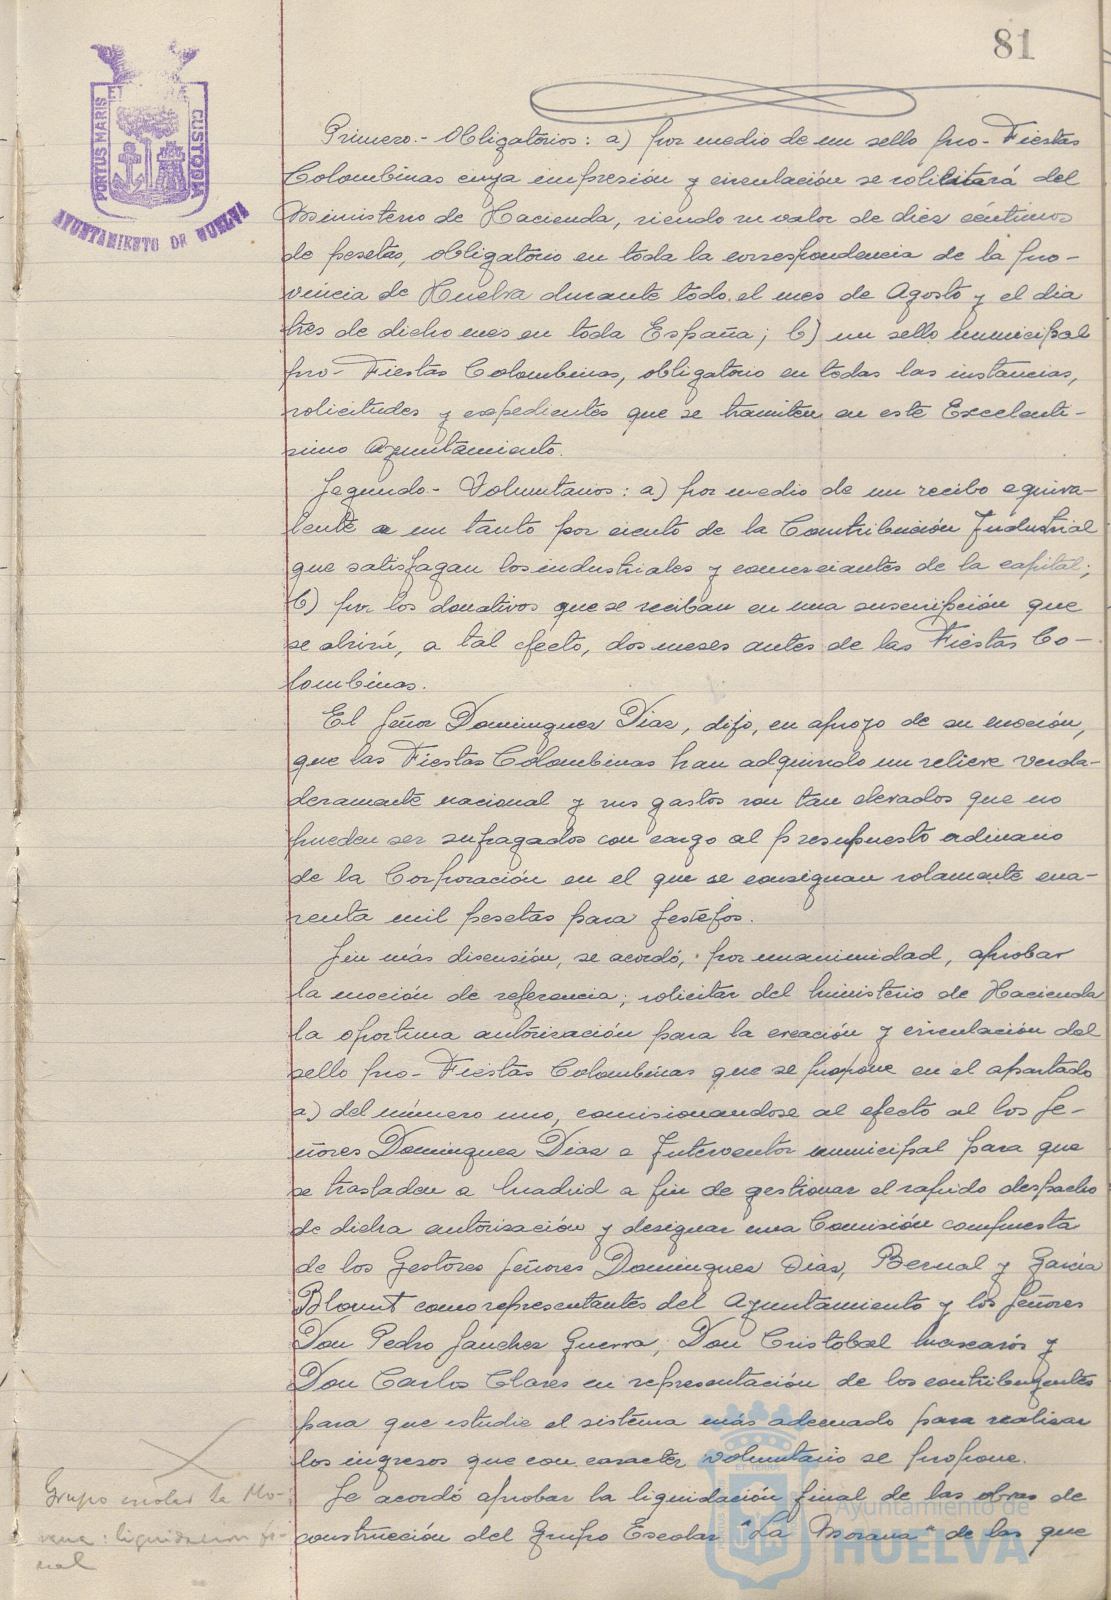 81
PORTUS MARIS ET CUSTODIA
AYUNTAMIENTO DE HUELVA
Primero.- Obligatorios: a) por medio de un sello pro-Fiestas
Colombinas cuya impresión y circulación se solicitará del
Ministerio de Hacienda, siendo su valor de diez céntimos
de pesetas, obligatorio en toda la correspondencia de la pro-
vincia de Huelva durante todo el mes de Agosto y el dia
tres de dicho mes en toda España; b) un sello municipal
pro-Fiestas Colombinas, obligatorio en todas las instancias,
solicitudes y expedientes que se tramiten en este Excelentí-
simo Ayuntamiento.
Segundo.- Voluntarios: a) por medio de un recibo equiva-
lente a un tanto por ciento de la Contribución Industrial
que satisfagan los industriales y comerciantes de la capital;
b) por los donativos que se reciban en una suscripción que
se abrirá, a tal efecto, dos meses antes de las Fiestas Co-
lombinas.
El Señor Dominguez Diaz, dijo, en apoyo de su moción,
que las Fiestas Colombinas han adquirido un relieve verda-
deramente nacional y sus gastos son tan elevados que no
pueden ser sufragados con cargo al presupuesto ordinario
de la Corporación en el que se consignan solamente cua-
renta mil pesetas para festejos.
Sin más discusión, se acordó, por unanimidad, aprobar
la moción de referencia; solicitar del Ministerio de Hacienda
la oportuna autorización para la creación y circulación del
sello pro-Fiestas Colombinas que se propone en el apartado
a) del número uno, comisionandose al efecto al los Se-
ñores Dominguez Diaz e Interventor municipal para que
se trasladen a Madrid a fin de gestionar el rapido despacho
de dicha autorización y designar una Comisión compuesta
de los Gestores Señores Dominguez Diaz, Bernal y García
Blount como representantes del Ayuntamiento y los Señores
Don Pedro Sanchez Guerra, Don Cristobal Mascarós y
Don Carlos Clares en representación de los contribuyentes
para que estudie el sistema más adecuado para realizar
los ingresos que con caracter voluntario se propone.
Grupo escolar la Mo-
rana: liquidacion fi-
nal
Se acordó aprobar la liquidación final de las obras de
construcción del Grupo Escolar "La Morana" de las que
Ayuntamiento de
HUELVA